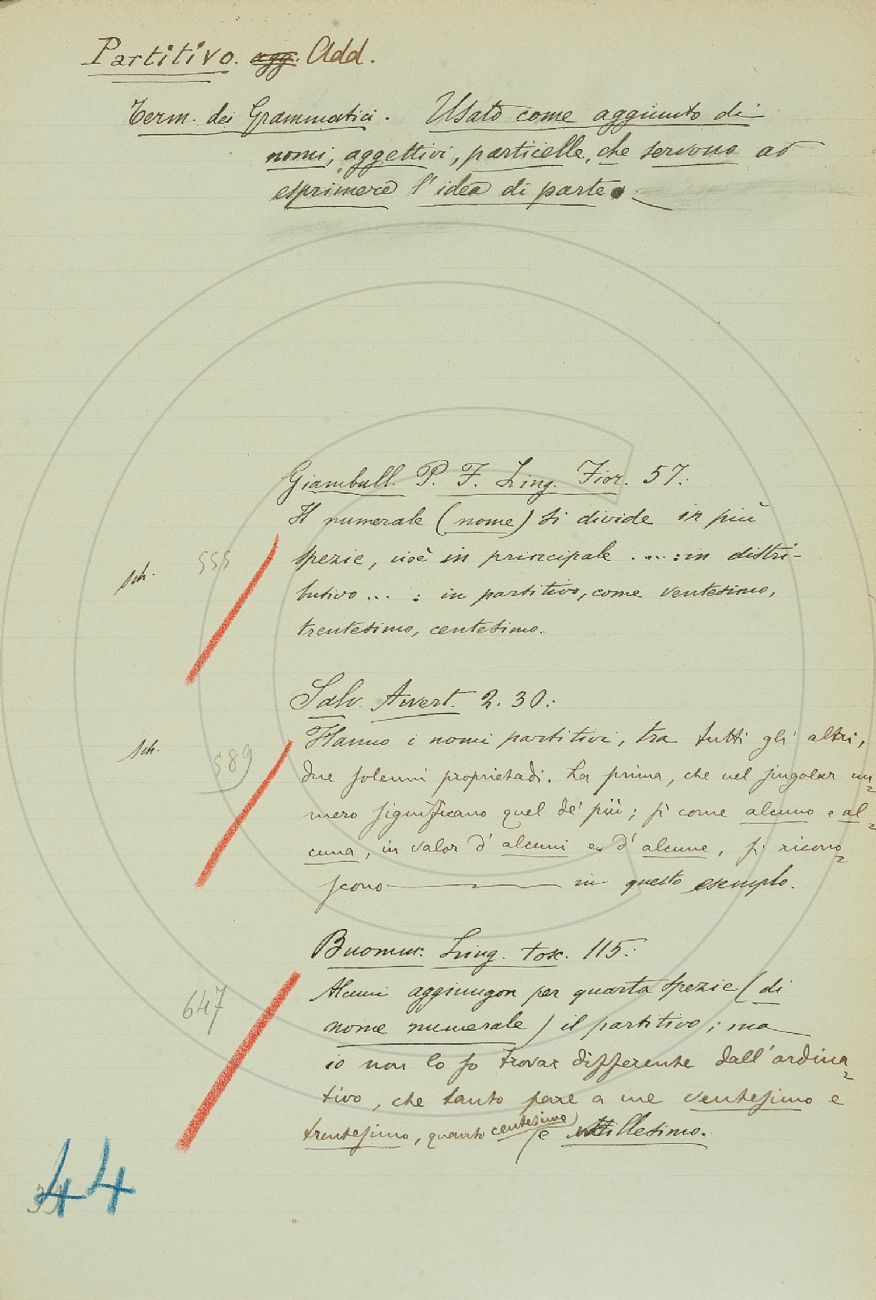 Partitivo. agg. Add.
Term. dei Grammatici. Usato come aggiunto di
nomi, aggettivi, particelle, che servono ad
esprimere l'idea di parte.
Giambull. P. F. Ling. Fior. 57.:
Il numerale (nome) si divide in più
sch. 555 spezie, cioè in principale ....: in distri-
butivo... : in partitivo, come ventesimo,
trentesimo, centesimo.
Salv. Avvert. 2. 30.:
sch. 589 Hanno i nomi partitivi, tra tutti gli altri,
due solenni proprietadi. La prima, che nel singolar nu=
mero significano quel de' più; sì come alcuno e al=
cuna, in valor d'alcuni e d'alcune, si ricono=
scono in questo esempio.
Buommt. Ling. tosc. 115.:
647 Alcuni aggiungon per quarta spezie (di
nome numerale) il partitivo; ma
io non lo so trovar differente dall'ordina=
tivo, che tanto pare a me ventesimo e
trentesimo, quanto centesimo e millesimo.
44